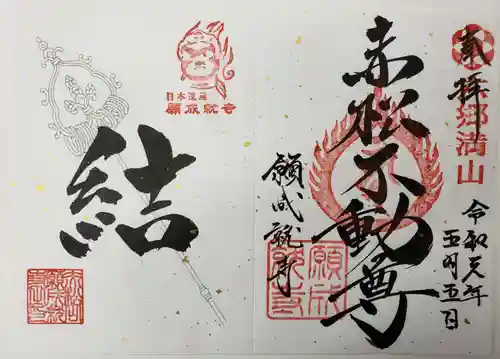 奉拝
郷満山
令和元年
五月五日
赤松不動尊
願成就寺
日本遺産
願成就寺
結